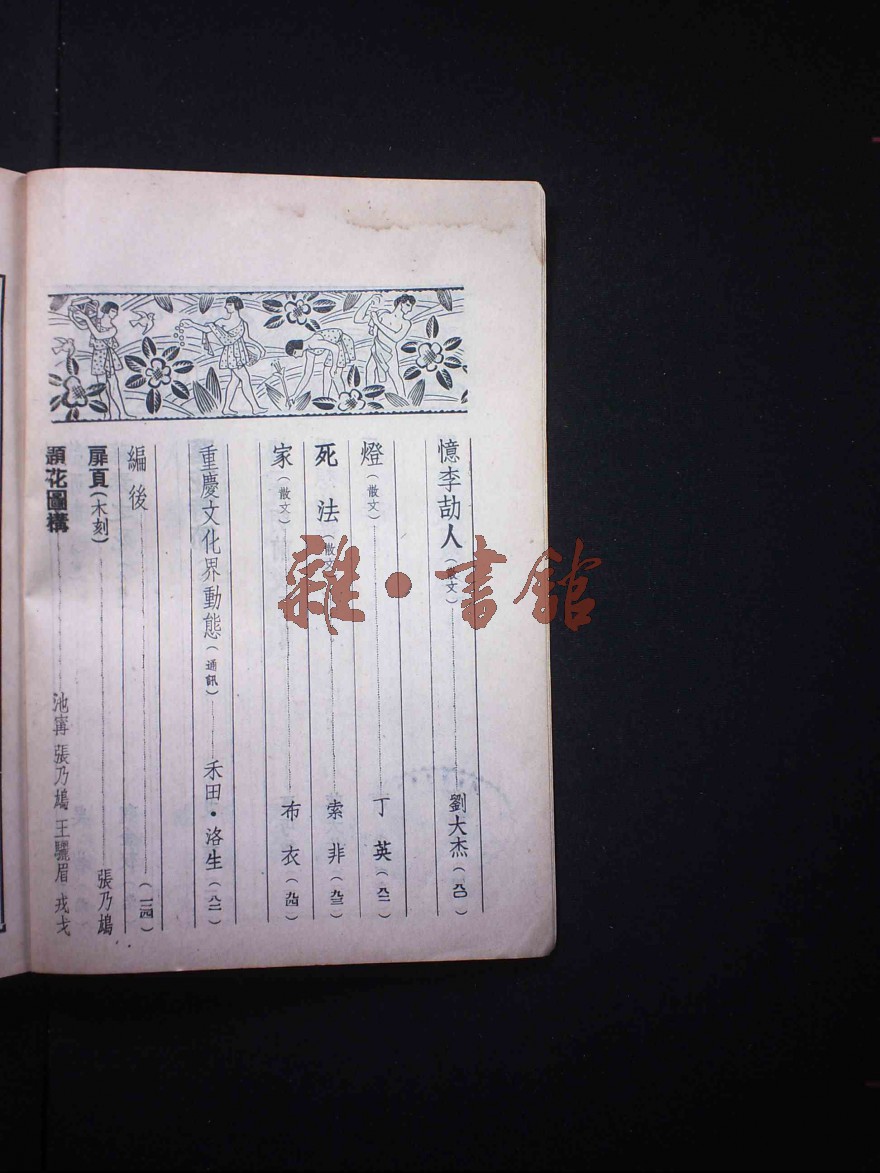 憶李劼人（散文）劉大杰（一八〇）
燈（散文）丁英（一八二）
死法（散文）索非（一八三）
家（散文）布衣（一八四）
重慶文化界動態（通訊）禾田・洛生（一八二）
編後（一二四）
扉頁（木刻）張乃鳩
題花圖構 池寗 張乃鳩 王驪眉 戎戈
雜・書館